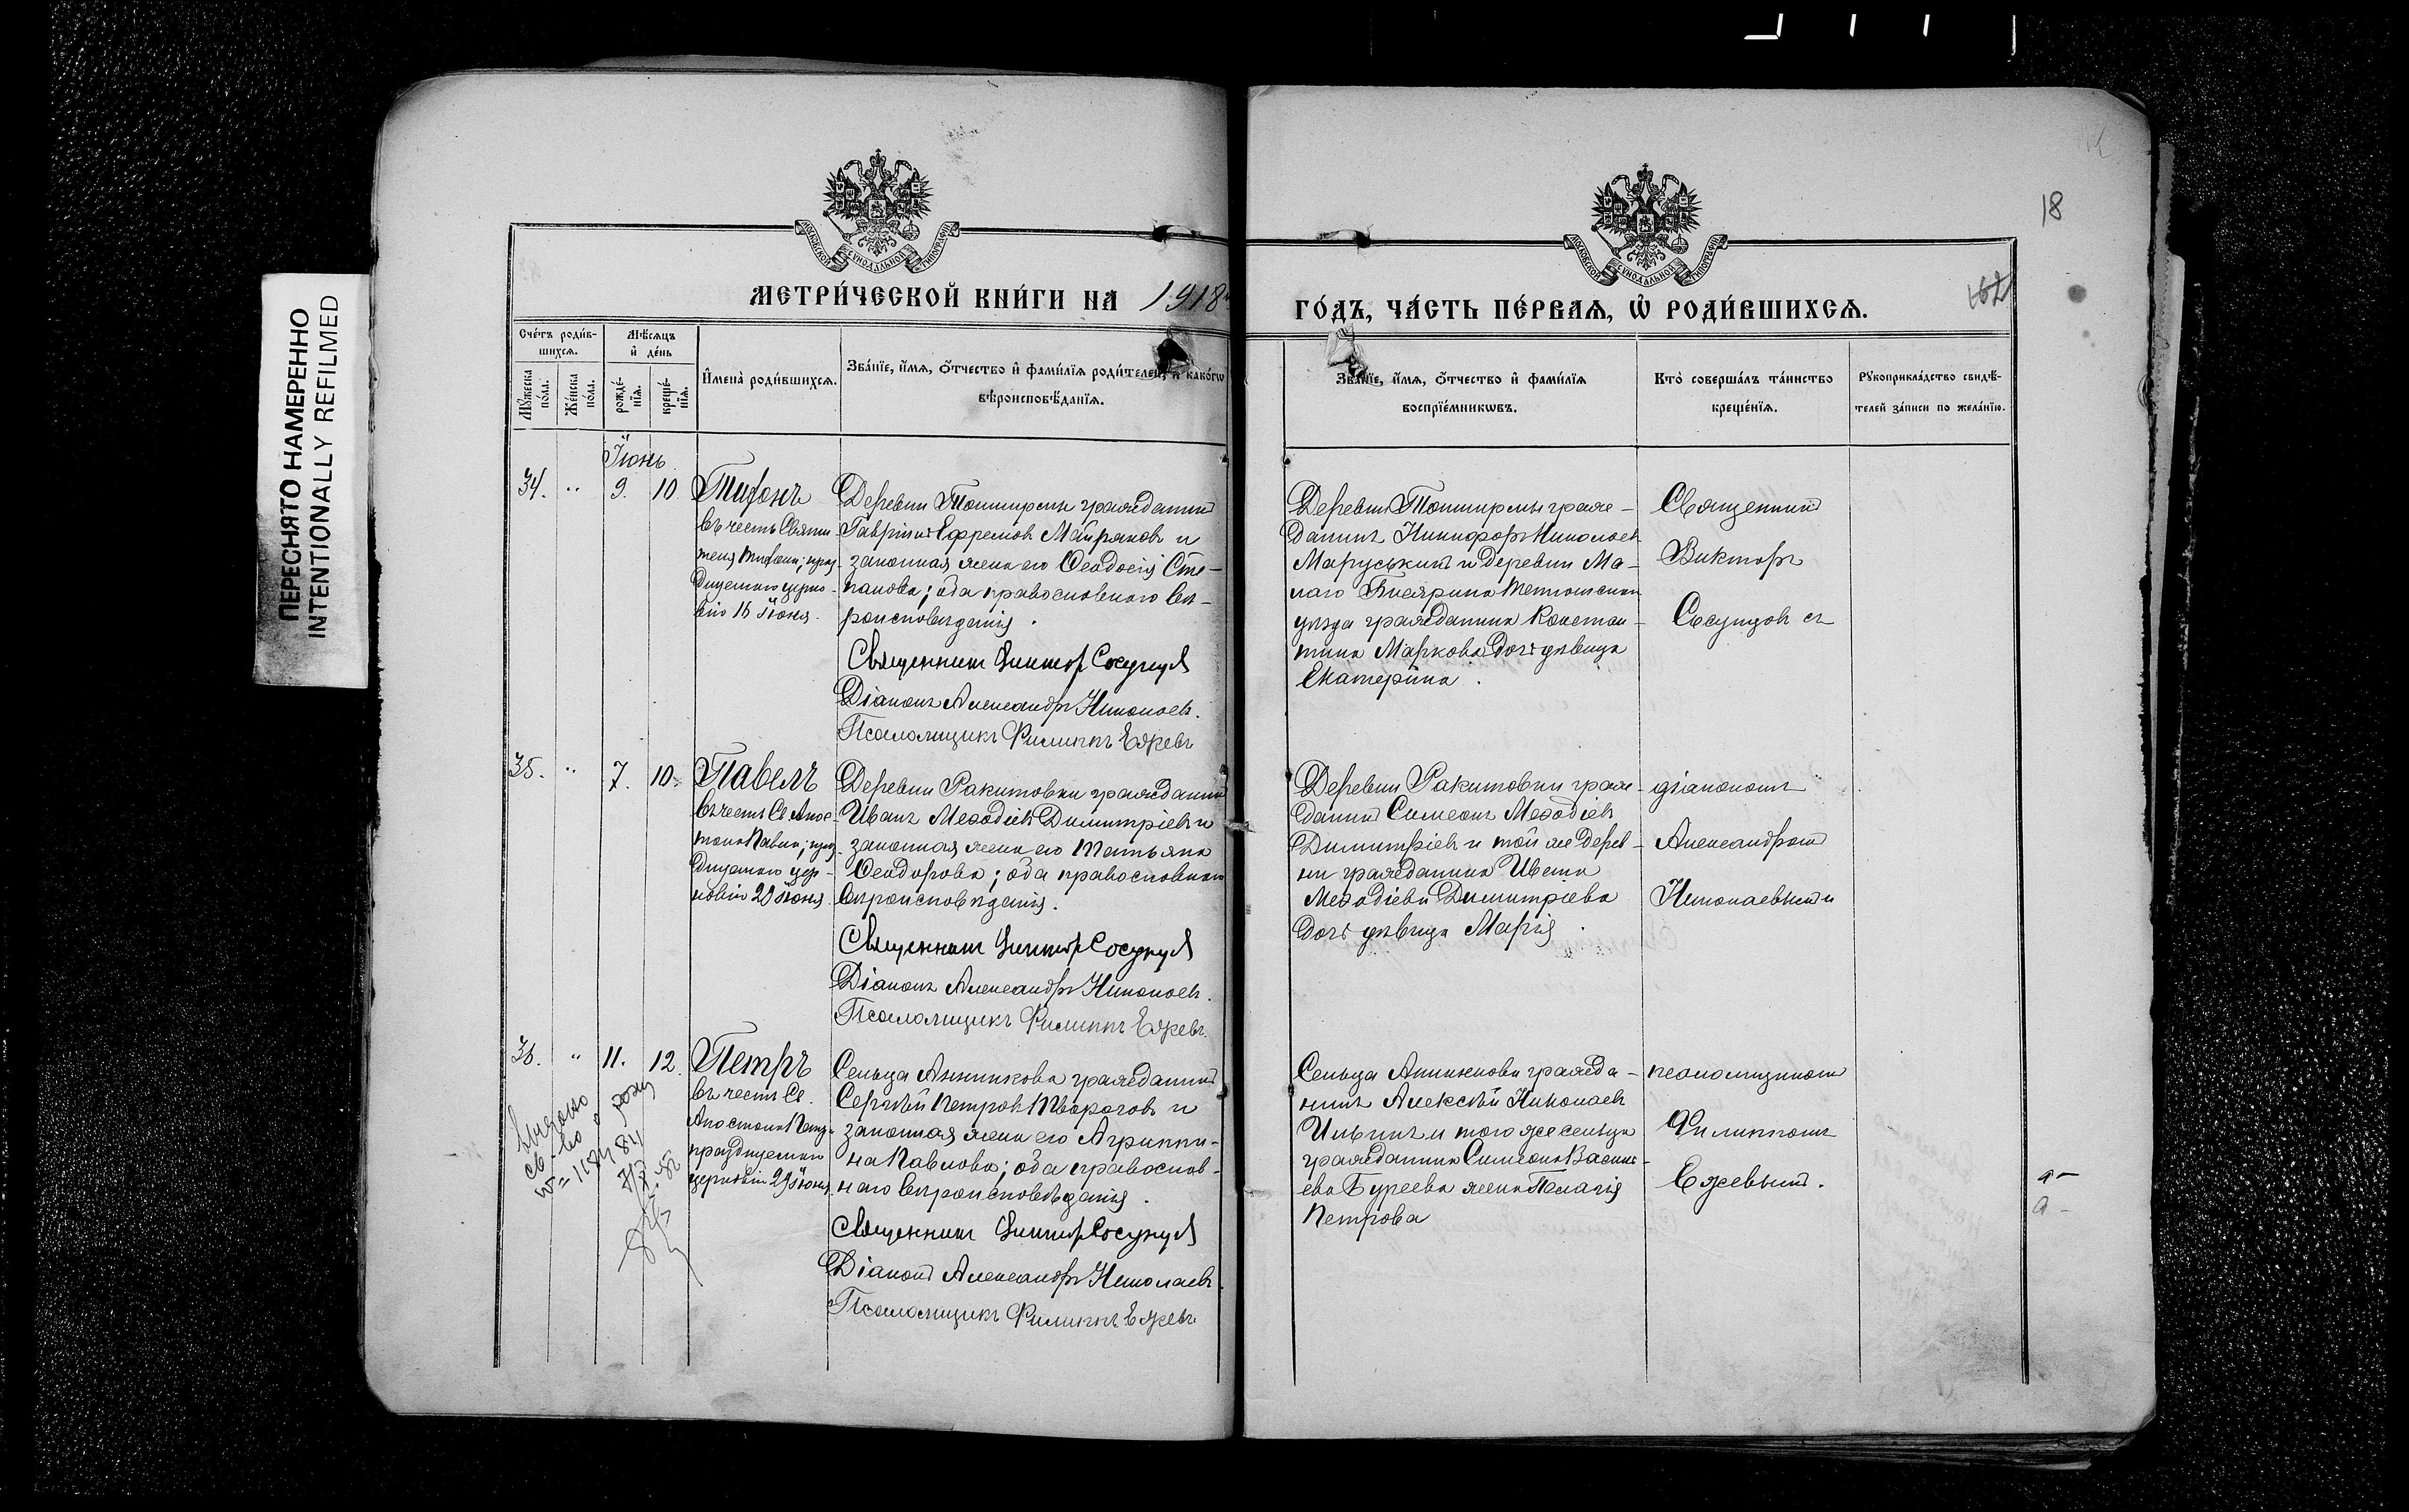 ПЕРЕСНЯТО НАМЕРЕННО
INTENTIONALLY REFILMED
18
МОСКОВСКОЙ СУНОДАЛЬНОЙ ТИПОГРАФІИ
МОСКОВСКОЙ СУНОДАЛЬНОЙ ТИПОГРАФІИ
МЕТРИ́ЧЕСКОЙ КНИ́ГИ НА 1918
ГО́ДЪ, ЧА́СТЬ ПЕ́РВАѦ, Ѡ҆ РОДИ́ВШИХСѦ.
162
Сче́тъ роди́в-
шихсѧ.
Мꙋ́жеска по́ла.
Же́нска по́ла.
Мѣ́сѧцъ
и҆ де́нь
рожде́-
нїѧ.
креще́-
нїѧ.
И҆мена̀ роди́вшихсѧ.
Зва́нїе, и҆́мѧ, ѻ҆́тчество и҆ фами́лїѧ роди́телей, и҆ како́гѡ
вѣроисповѣ́данїѧ.
Зва́нїе, и҆́мѧ, ѻ҆́тчество и҆ фами́лїѧ
воспрїе́мникѡвъ.
Кто̀ соверша́лъ та́инство
креще́нїѧ.
Рꙋкоприкла́дство свидѣ́-
телей за́писи по жела́нїю.
Іюнь
34. " 9. 10.
Тихонъ
въ честь Святи-
теля Тихона; праз-
днуемаго церко-
вію 16 Іюня.
Деревни гражданинъ
Гавріилъ Ефремовъ Майраковъ и
законная жена его Ѳеодосія Сте-
панова; оба православнаго вѣ-
роисповѣданія.
Священникъ Викторъ Сосунцовъ
Діаконъ Александръ Николаевъ.
Псаломщикъ Филиппъ Ежевъ
Деревни граж-
данинъ Никифоръ Николаевъ
и деревни Ма-
лаго Тетюшскаго
уѣзда гражданина Констан-
тина Маркова дочь дѣвица
Екатерина.
Священникъ
Викторъ
Сосунцовъ съ
35. " 7. 10.
Павелъ
въ честь Св. Апос-
тола Павла; праз-
днуемаго цер-
ковію 29 Іюня.
Деревни Ракитовки гражданинъ
Иванъ Меѳодіевъ Димитріевъ и
законная жена его Татьяна
Ѳеодорова; оба православнаго
вѣроисповѣданія.
Священникъ Викторъ Сосунцовъ
Діаконъ Александръ Николаевъ.
Псаломщикъ Филиппъ Ежевъ.
Деревни Ракитовки граж-
данинъ Симеонъ Меѳодіевъ
Димитріевъ и той же дерев-
ни гражданина Ивана
Меѳодіева Димитріева
дочь дѣвица Марія.
діакономъ
Александромъ
Николаевымъ
36. " 11. 12.
Петръ
въ честь Св.
Апостола Петра
празднуемаго
церковію 29 Іюня.
Сельца Анненкова гражданинъ
Сергѣй Петровъ Твороговъ и
законная жена его Агриппи-
на Павлова; оба православ-
наго вѣроисповѣданія.
Священникъ Викторъ Сосунцовъ
Діаконъ Александръ Николаевъ.
Псаломщикъ Филиппъ Ежевъ
Сельца Анненкова гражда-
нинъ Алексѣй Николаевъ
Ильинъ и того же сельца
гражданина Симеона Василь-
ева Буреева жена Пелагія
Петрова
псаломщикомъ
Филиппомъ
Ежевымъ.
св-во о рожд